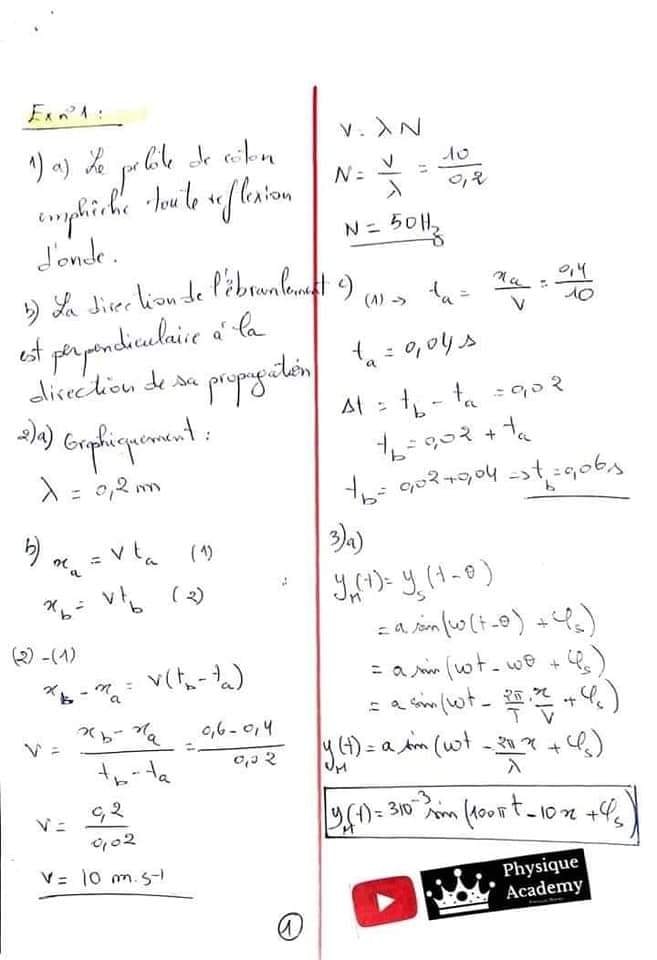 Ex n°1 :
1) a) Le pelote de coton
emphêche toute reflexion
d'onde.
b) La direction de l'ébranlement
est perpendiculaire à la
direction de sa propagation
2) a) Graphiquement :
λ = 0,2 m
b) x_a = V t_a (1)
x_b = V t_b (2)
(2) - (1)
x_b - x_a = V(t_b - t_a)
V = (x_b - x_a)/(t_b - t_a) = (0,6 - 0,4)/0,02
V = 0,2/0,02
V = 10 m.s-1
V = λ N
N = V/λ = 10/0,2
N = 50 Hz
c) (1) → t_a = x_a/V = 0,4/10
t_a = 0,04 s
Δt = t_b - t_a = 0,02
t_b = 0,02 + t_a
t_b = 0,02 + 0,04 => t_b = 0,06 s
3) a)
y_M(t) = y_s(t - θ)
= a sin(ω(t - θ) + φ_s)
= a sin(ωt - ωθ + φ_s)
= a sin(ωt - 2π/T . x/V + φ_s)
y_M(t) = a sin(ωt - 2πx/λ + φ_s)
y_M(t) = 3 10^-3 sin(100π t - 10x + φ_s)
Physique
Academy
1